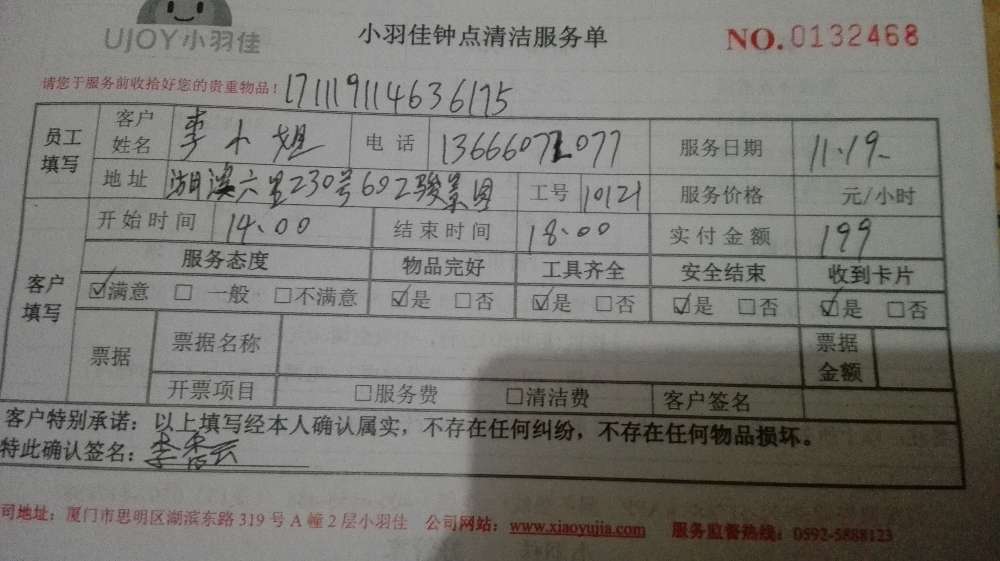 UJOY小羽佳 小羽佳钟点清洁服务单 NO.0132468
请您于服务前收拾好您的贵重物品! 171119114636175
员工填写 客户姓名 李小姐 电话 13666071077 服务日期 11.19.
地址 湖滨六里230号602骏景园 工号 10121 服务价格 元/小时
客户填写 开始时间 14.00 结束时间 18.00 实付金额 199
服务态度 物品完好 工具齐全 安全结束 收到卡片
☑满意 □一般 □不满意 ☑是 □否 ☑是 □否 ☑是 □否 ☑是 □否
票据 票据名称 票据金额
开票项目 □服务费 □清洁费 客户签名
客户特别承诺：以上填写经本人确认属实，不存在任何纠纷，不存在任何物品损坏。
特此确认签名：李香云
司地址：厦门市思明区湖滨东路319号A幢2层小羽佳 公司网站：www.xiaoyujia.com 服务监督热线：0592-5888123